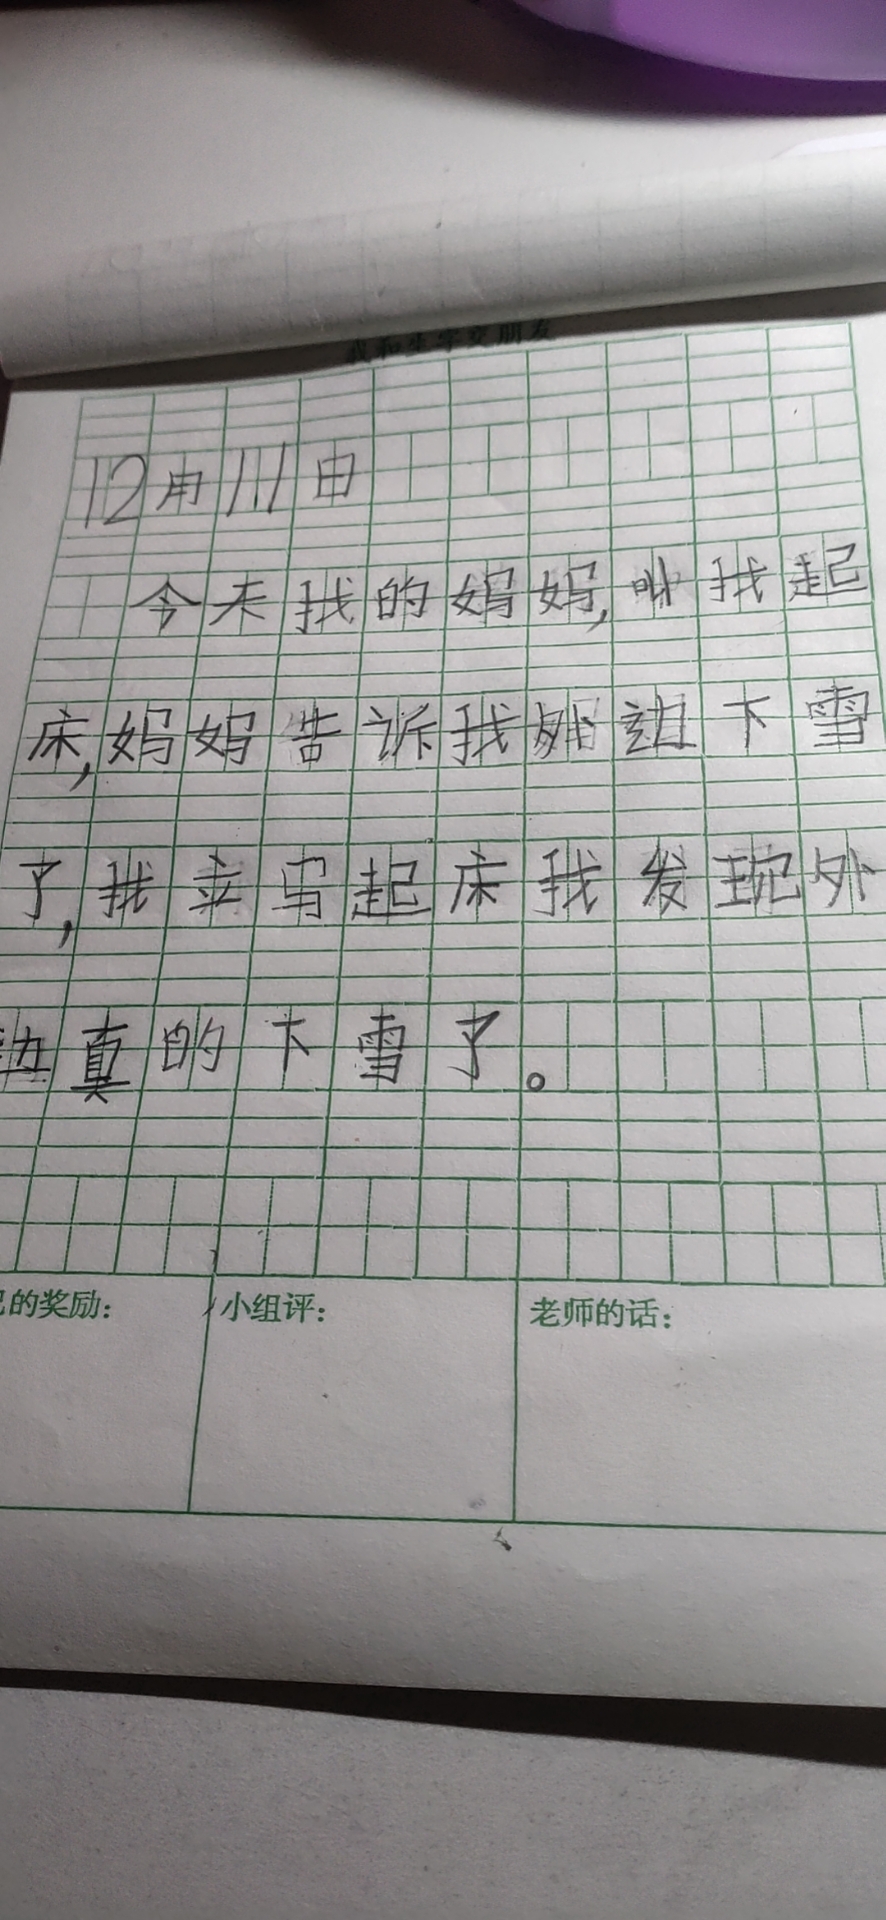 我和生字交朋友
12月11日
今天我的妈妈,叫我起
床,妈妈告诉我外边下雪
了,我立马起床我发现外
边真的下雪了。
己的奖励:
小组评:
老师的话: